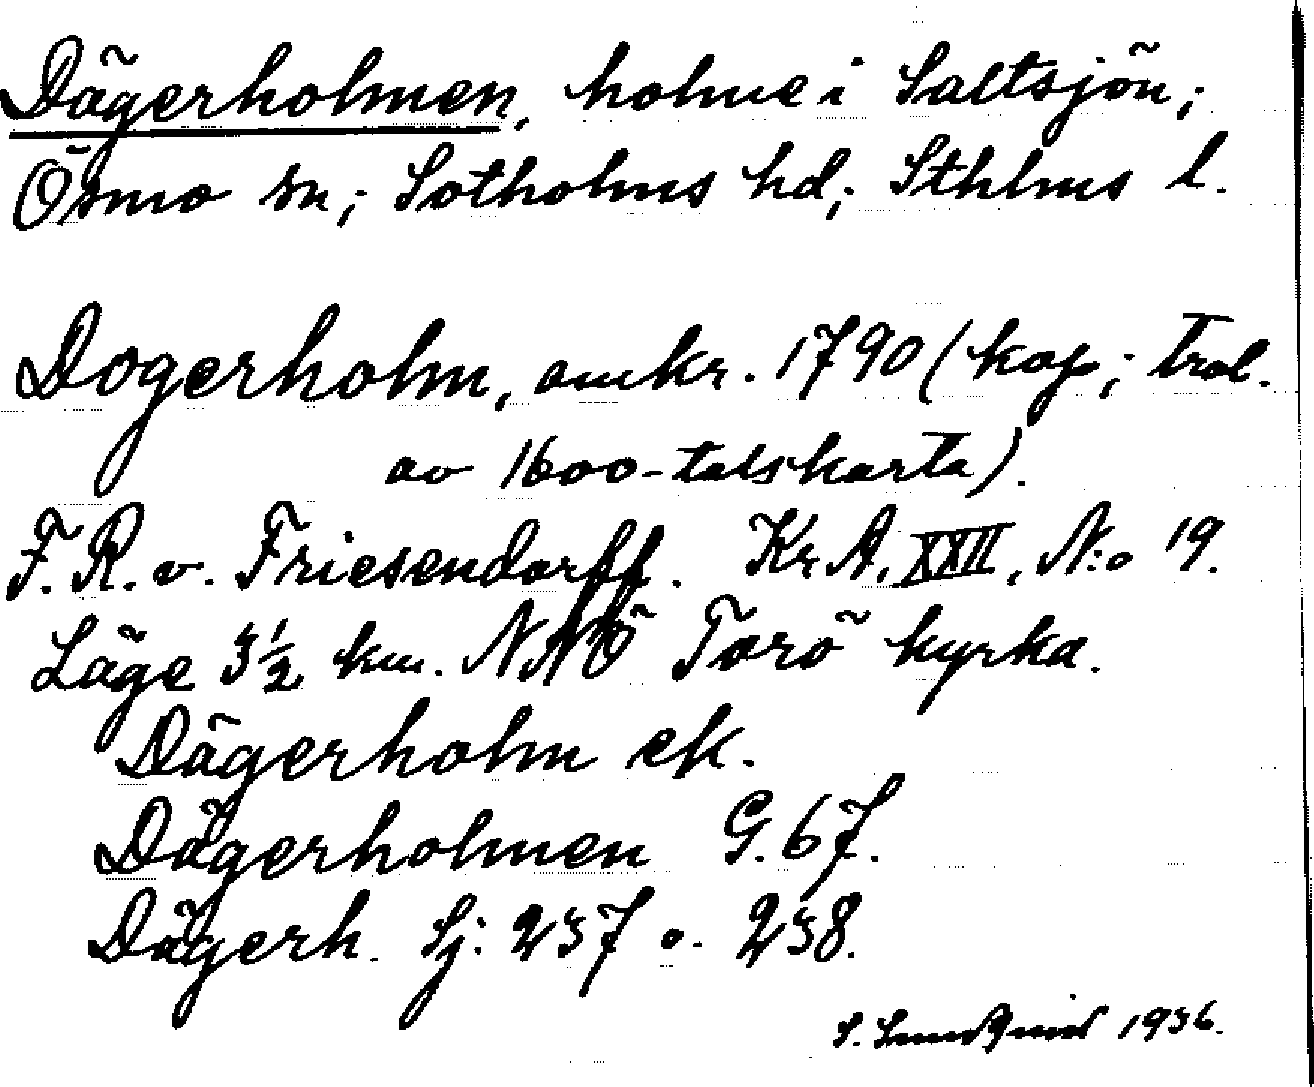 Dägerholmen, holme i Saltsjön;
Ösmo sn; Sotholms hd; Sthlms l.
Dogerholm, omkr. 1790 (kop; trol.
av 1600-talskarta).
F. R. v. Friesendorff. Kr A, XXII, N:o 19.
Läge 3½ km. NNÖ Torö kyrka.
Dägerholm ek.
Dägerholmen G. 67.
Dägerh. Sj: 237 o. 238.
S. Lundqvist 1936.